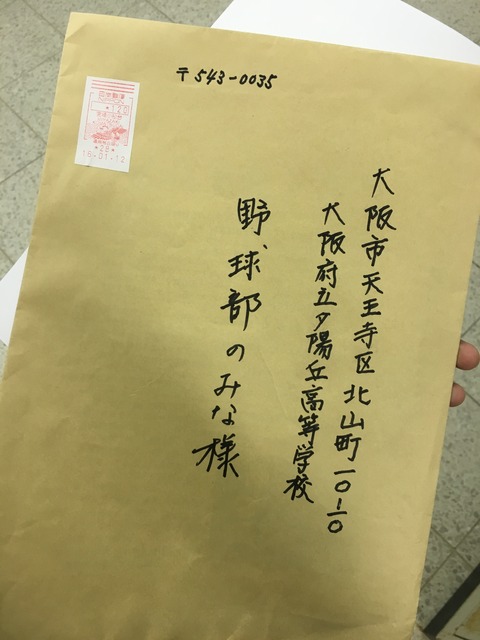 〒543-0035
大阪市天王寺区北山町一〇-一〇
大阪府立夕陽丘高等学校
野球部のみな様
日本郵便
NIPPON
120
16.01.12